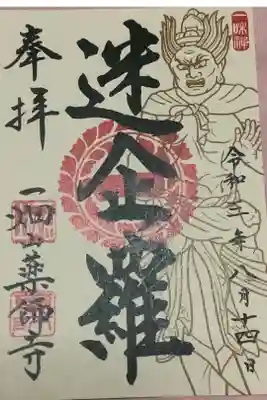 奉拝
迷企羅
一畑山薬師寺
令和二年八月十四日